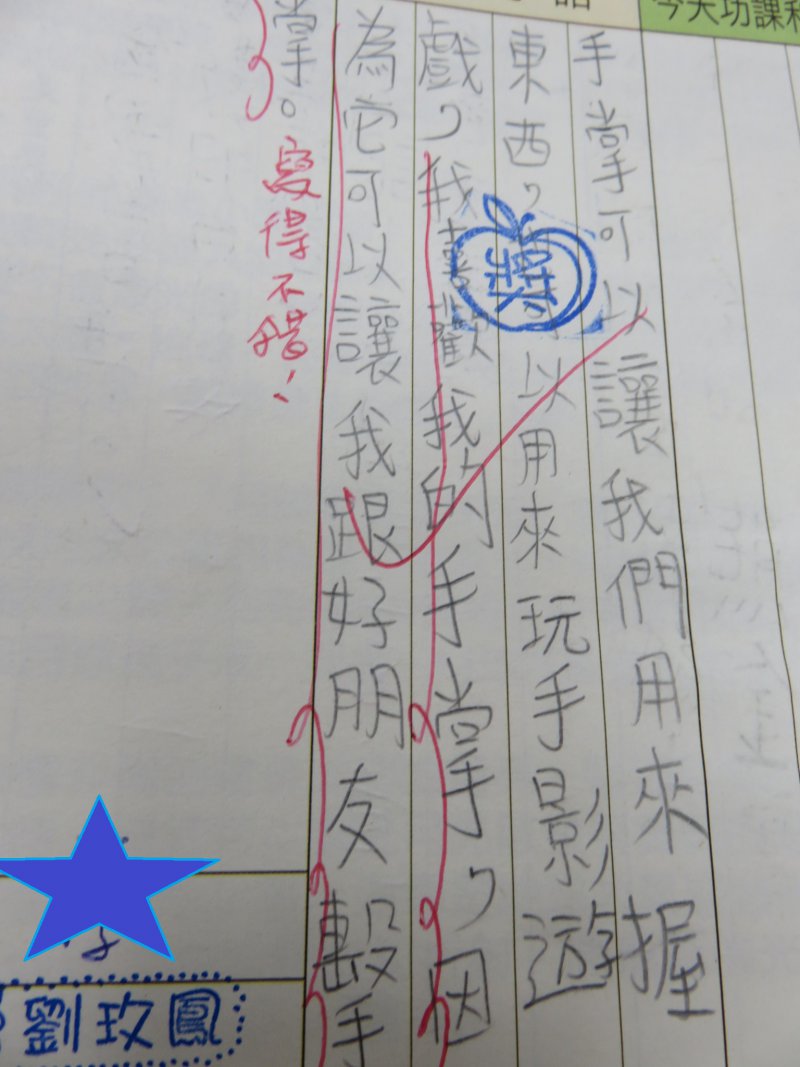 今天功課
手掌可以讓我們用來握
東西，以用來玩手影遊
戲，我喜歡我的手掌，因
為它可以讓我跟好朋友擊
掌。
寫得不錯！
劉玫鳳